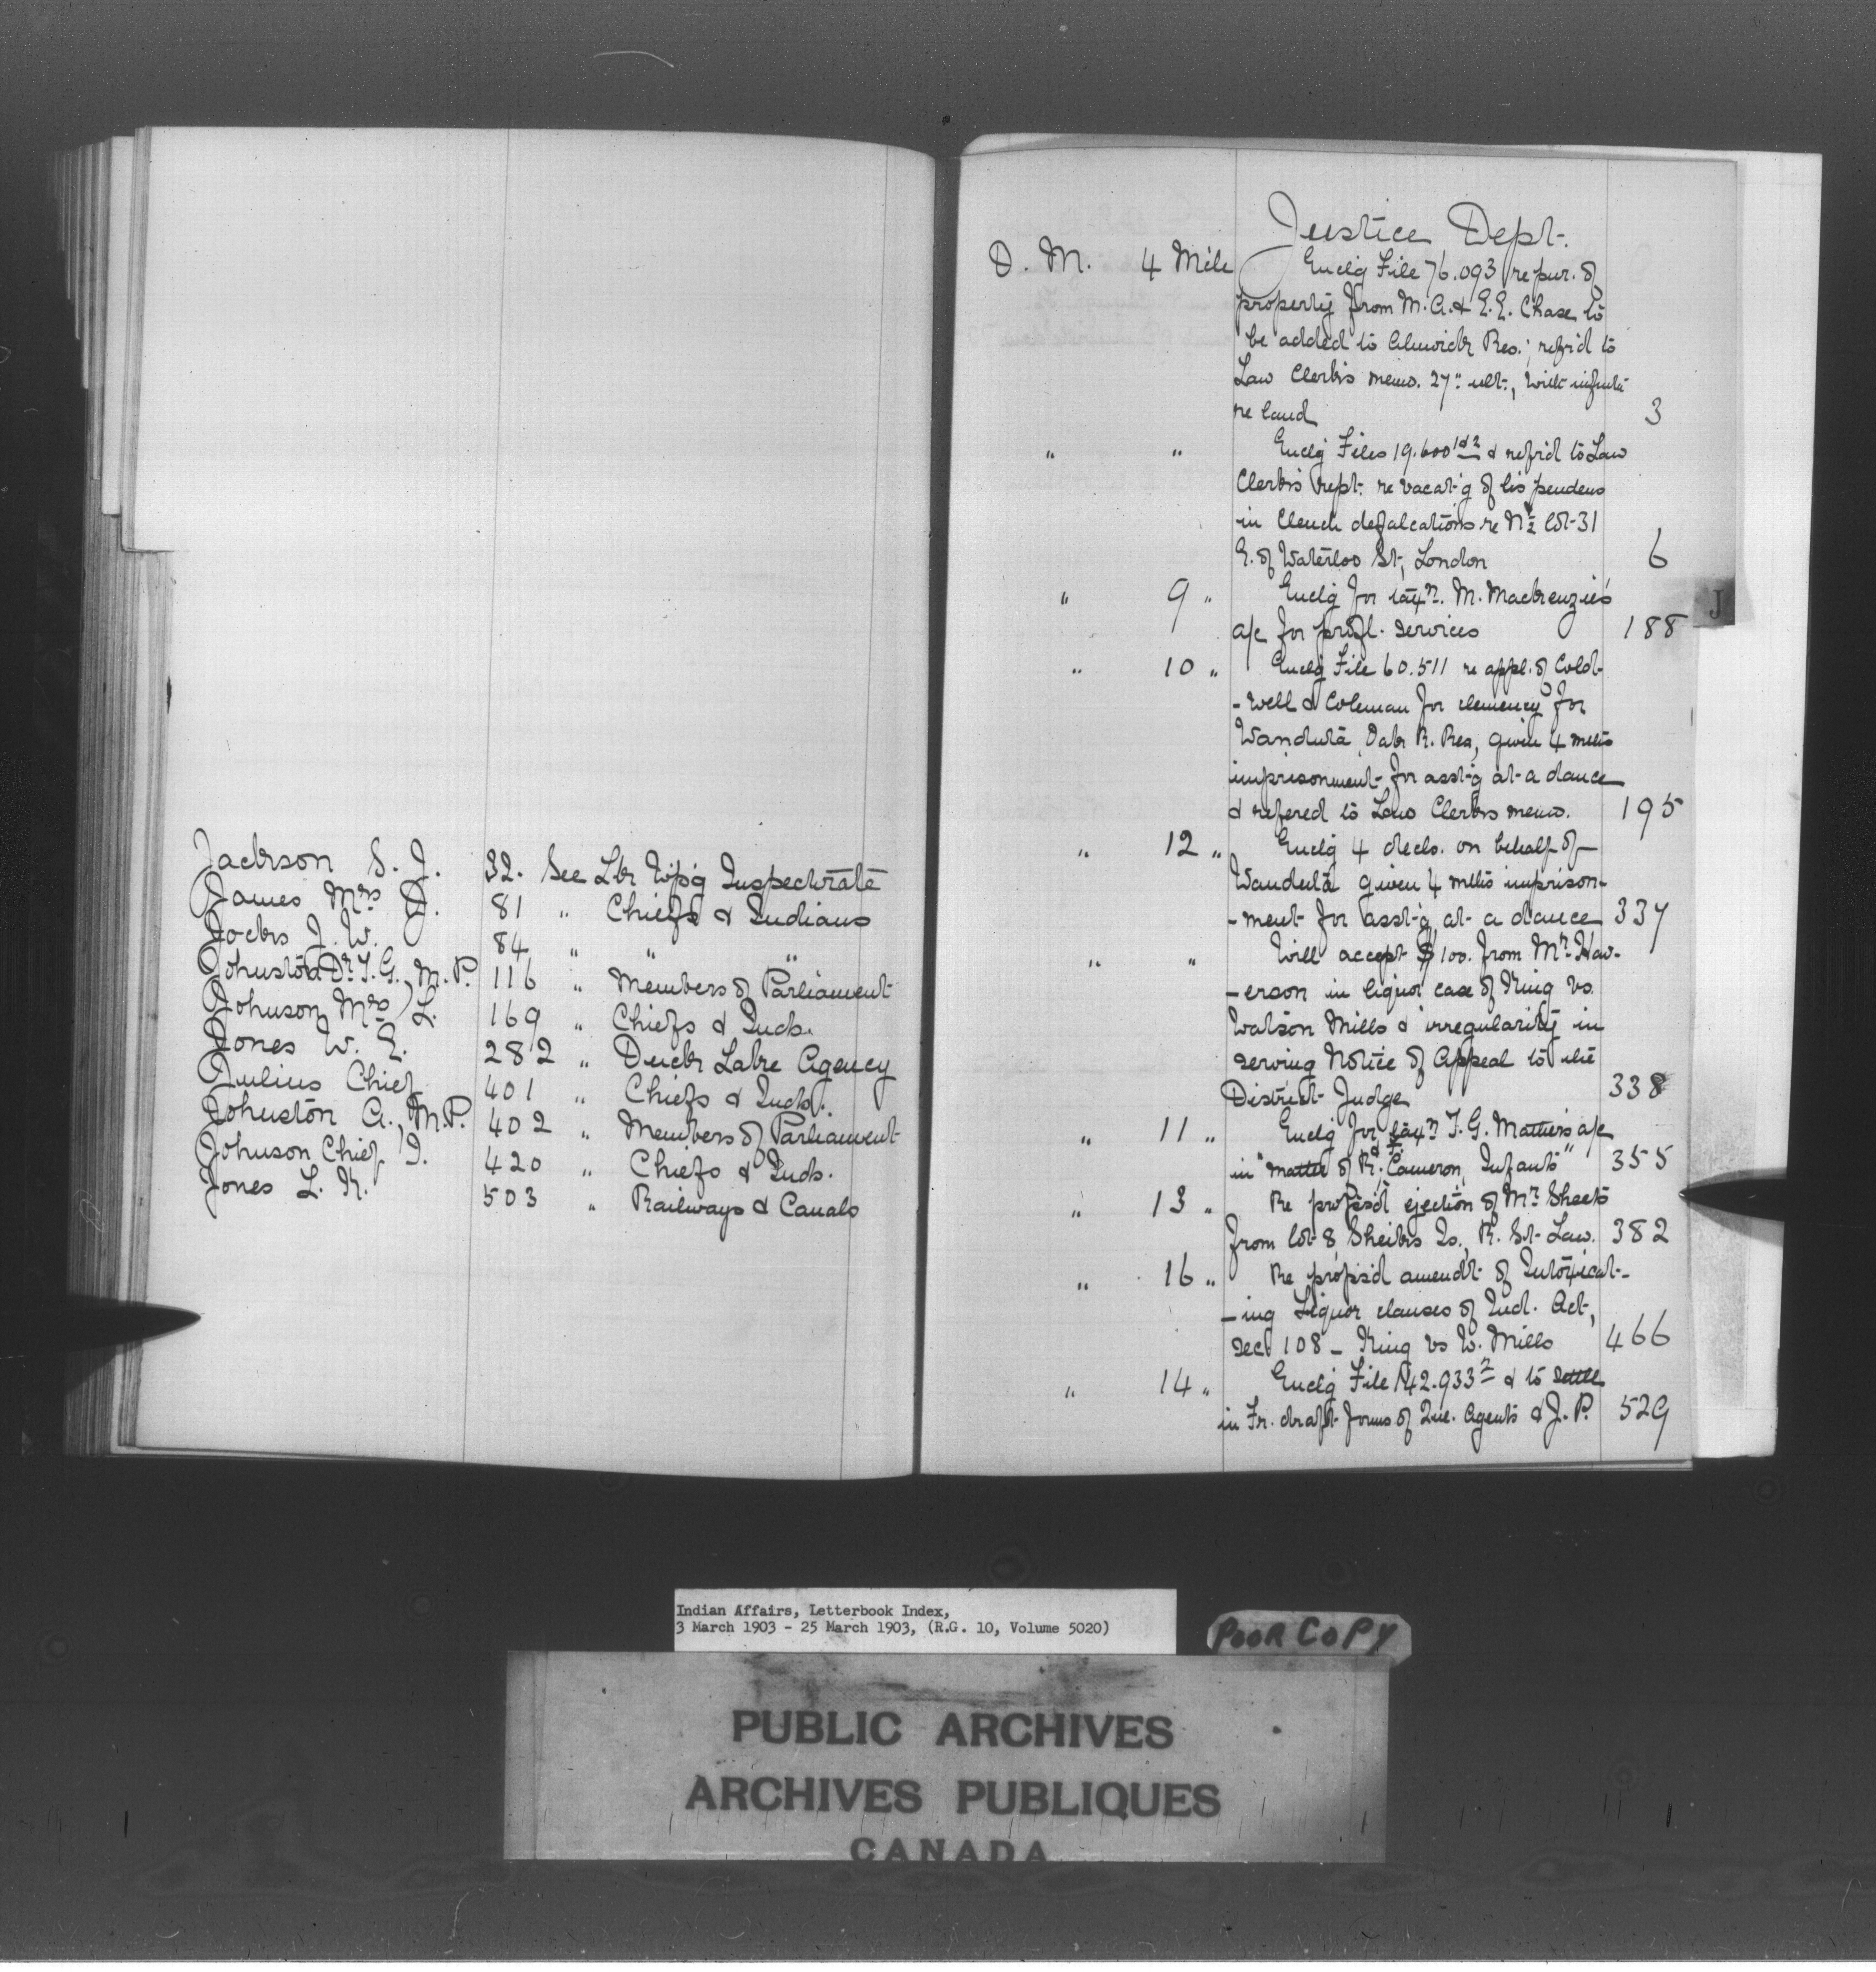 Jackson S. J. 32. See Ltr Wp'g Inspectorate
James Mrs J. 81 " Chiefs & Indians
Jocks J. W. 84 " " "
Johnston Dr T. G., M. P. 116 " Members of Parliament
Johnson Mrs L. 169 " Chiefs & Inds.
Jones W. E. 282 " Duck Lake Agency
Julius Chief 401 " Chiefs & Inds.
Johnston A., M.P. 402 " Members of Parliament
Johnson Chief I. 420 " Chiefs & Inds.
Jones L. K. 503 " Railways & Canals
Justice Dept.
D. M. 4 Mch Enclg File 76.093 re pur. of
property from M. A. & E. E. Chase to
be added to Alnwick Res.; refer'd to
Law Clerk's memo. 27" ult.,
re land 3
" " Enclg Files 19.600 1&2 & refer'd to Law
Clerk's rept. re vacat'g of lis pendens
in Clench defalcations re N½ lot 31
E. of Waterloo St, London 6
" 9 " Enclg for taxn. M. Mackenzie's
a/c for profl. services 188
" 10 " Enclg File 60.511 re appl. of Cold-
-well & Coleman for clemency for
Wanduta, Oak R. Res, given 4 mths
imprisonment for asst'g at a dance
& refered to Law Clerks memo. 195
" 12 " Enclg 4 decls. on behalf of
Wanduta given 4 mths imprison-
-ment for asst'g at a dance 337
" " Will accept $100. from Mr Hav-
-erson in liquor case of King vs.
Watson Mills & irregularity in
serving Notice of Appeal to the
District Judge 338
" 11 " Enclg for taxn T. G. Mathers a/c
in "matter of R. & F. Cameron, Infants" 355
" 13 " Re propos'd ejection of Mr Sheets
from lot 8 Sheiks Is., R. St. Law. 382
" 16 " Re propos'd amendt of Intoxicat-
-ing Liquor clauses of Ind. Act,
sec 108 - King vs W. Mills 466
" 14 " Enclg File 142.933 2 & to settle
in Fr. draft forms of Que. Agents & J. P. 529
J
Indian Affairs, Letterbook Index,
3 March 1903 - 25 March 1903, (R.G. 10, Volume 5020)
POOR COPY
PUBLIC ARCHIVES
ARCHIVES PUBLIQUES
CANADA